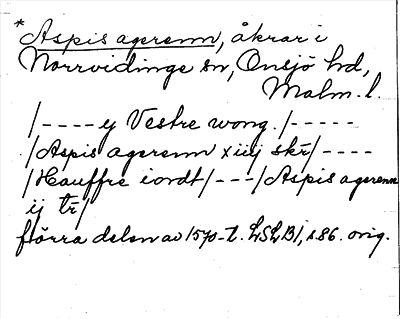 *Aspis agerenn, åkrar i
Norrvidinge sn, Onsjö hd,
Malm. l.
/----ej Vestre wong. /-----
/Aspis agerenn xiij skr/----
/Hauffre iordt/---/Aspis agerenn
ij tr/
förra delen av 1570-t. LSLB1, s. 86. orig.